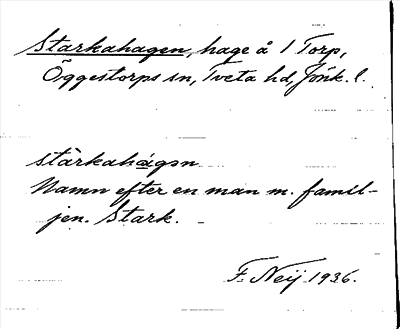 Starkahagen, hage å 1 Torp,
Öggestorps sn, Tveta hd, Jönk. l.
stàrkahágən
Namn efter en man m. famil-
jen. Stark.
F. Neij 1936.